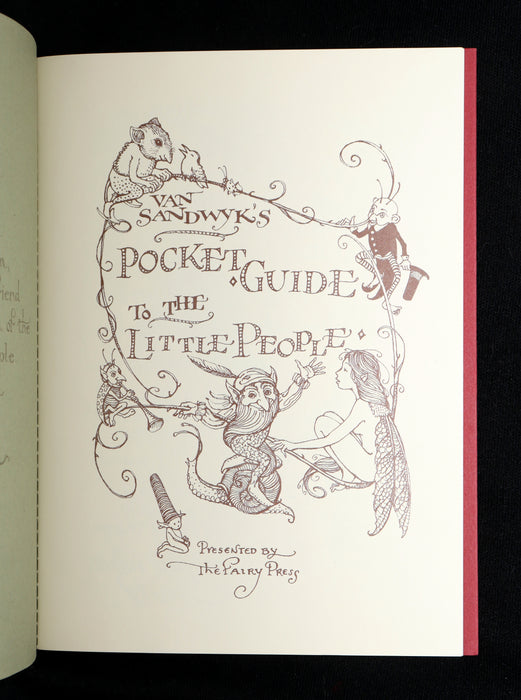 VAN
SANDWYK'S
POCKET GUIDE
TO THE
LITTLE PEOPLE
PRESENTED BY
The FAIRY PRESS
riend
of the
ple.